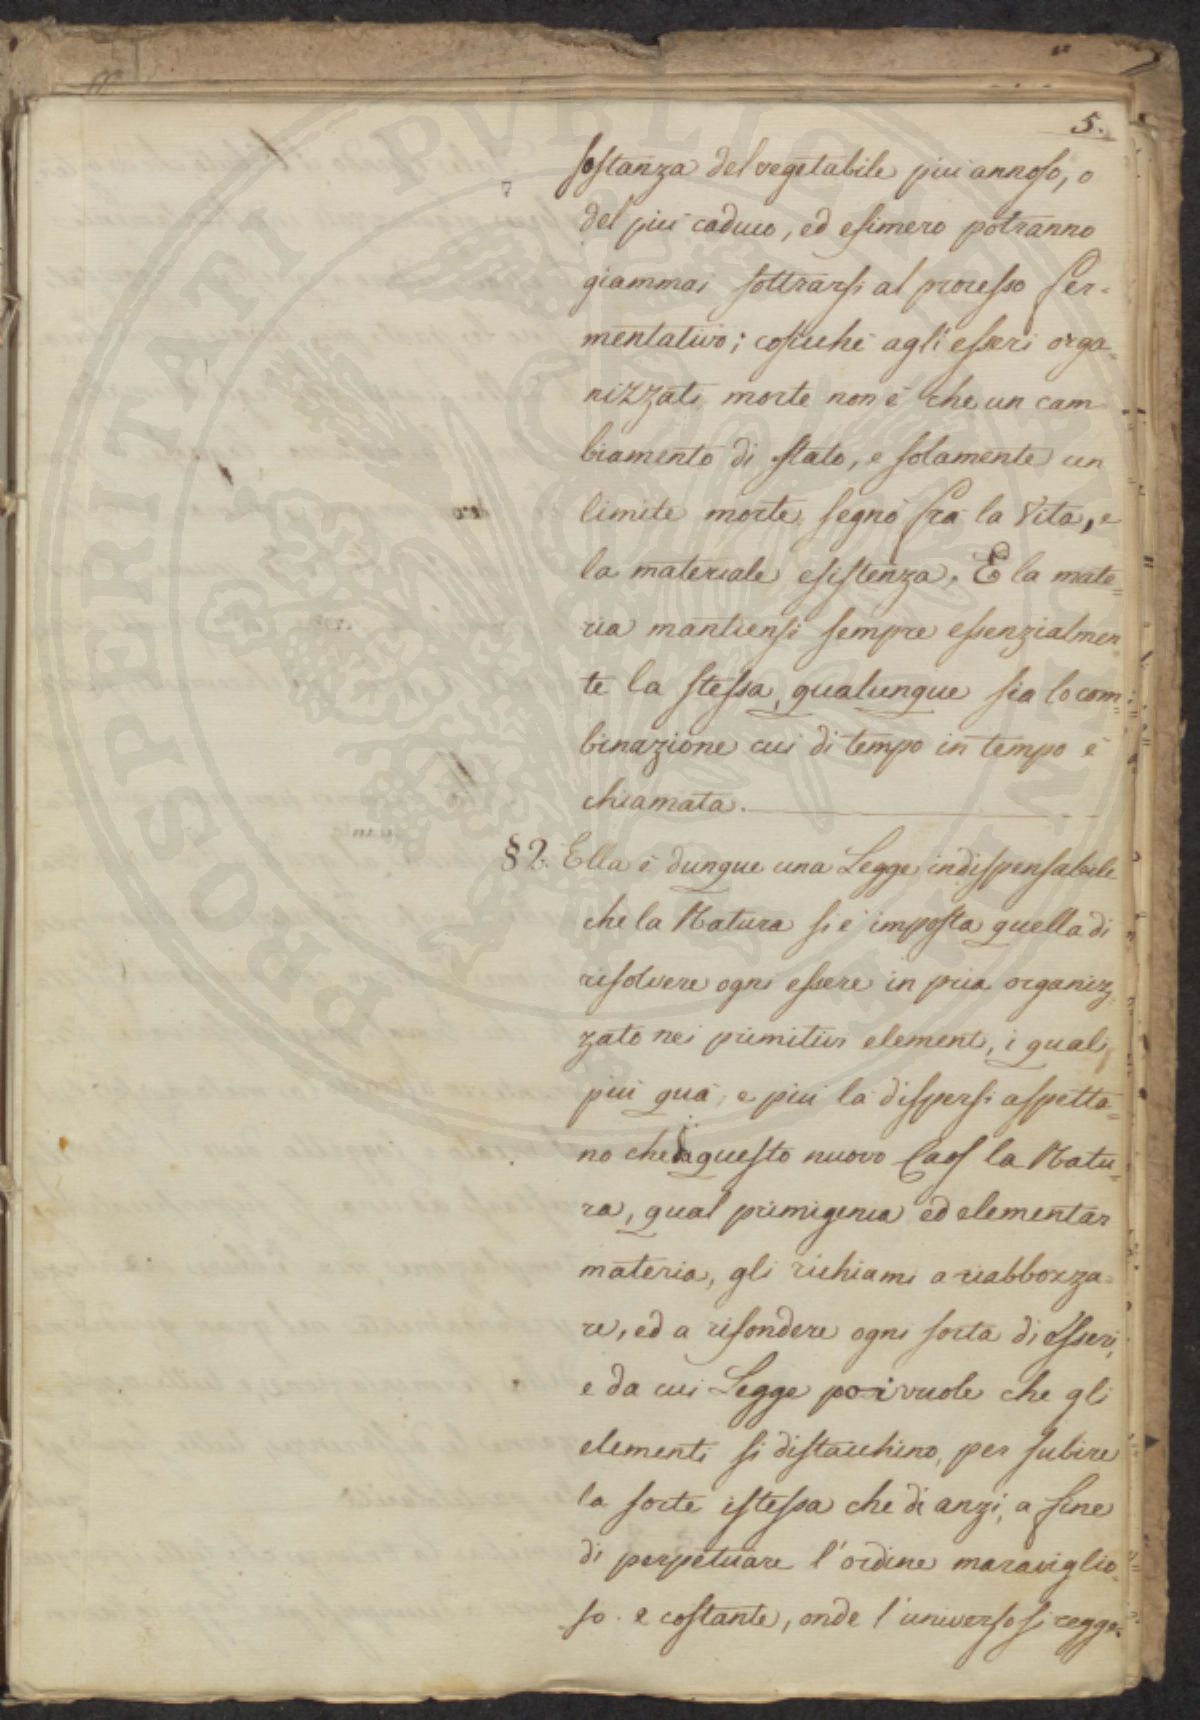 5.
sostanza del vegetabile più annoso, o
del più caduco, ed efimero potranno
giammai sottrarsi al processo fer-
mentativo; cosicchè agli esseri orga-
nizzati morte non è che un cam-
biamento di stato, e solamente un
limite morte segnò frà la Vita, e
la materiale esistenza, E la mate=
ria mantiensi sempre essenzialmen=
te la stessa, qualunque sia la com=
binazione cui di tempo in tempo è
chiamata.
§ 2. Ella è dunque una Legge indispensabile
che la Natura si è imposta quella di
risolvere ogni essere in pria organiz=
zato nei primitivi elementi, i quali
più quà, e più là dispersi aspetta=
no che da questo nuovo Caos la Natu=
ra, qual primigenia ed elementar
materia, gli richiami a riabbozza=
re, ed a rifondere ogni sorta di Esseri,
e da cui Legge poi vuole che gli
elementi si distacchino, per subire
la sorte istessa che dianzi, a fine
di perpetuare l'ordine maraviglio=
so e costante, onde l'universo si regge.
PROSPERITATI PVBLICAE